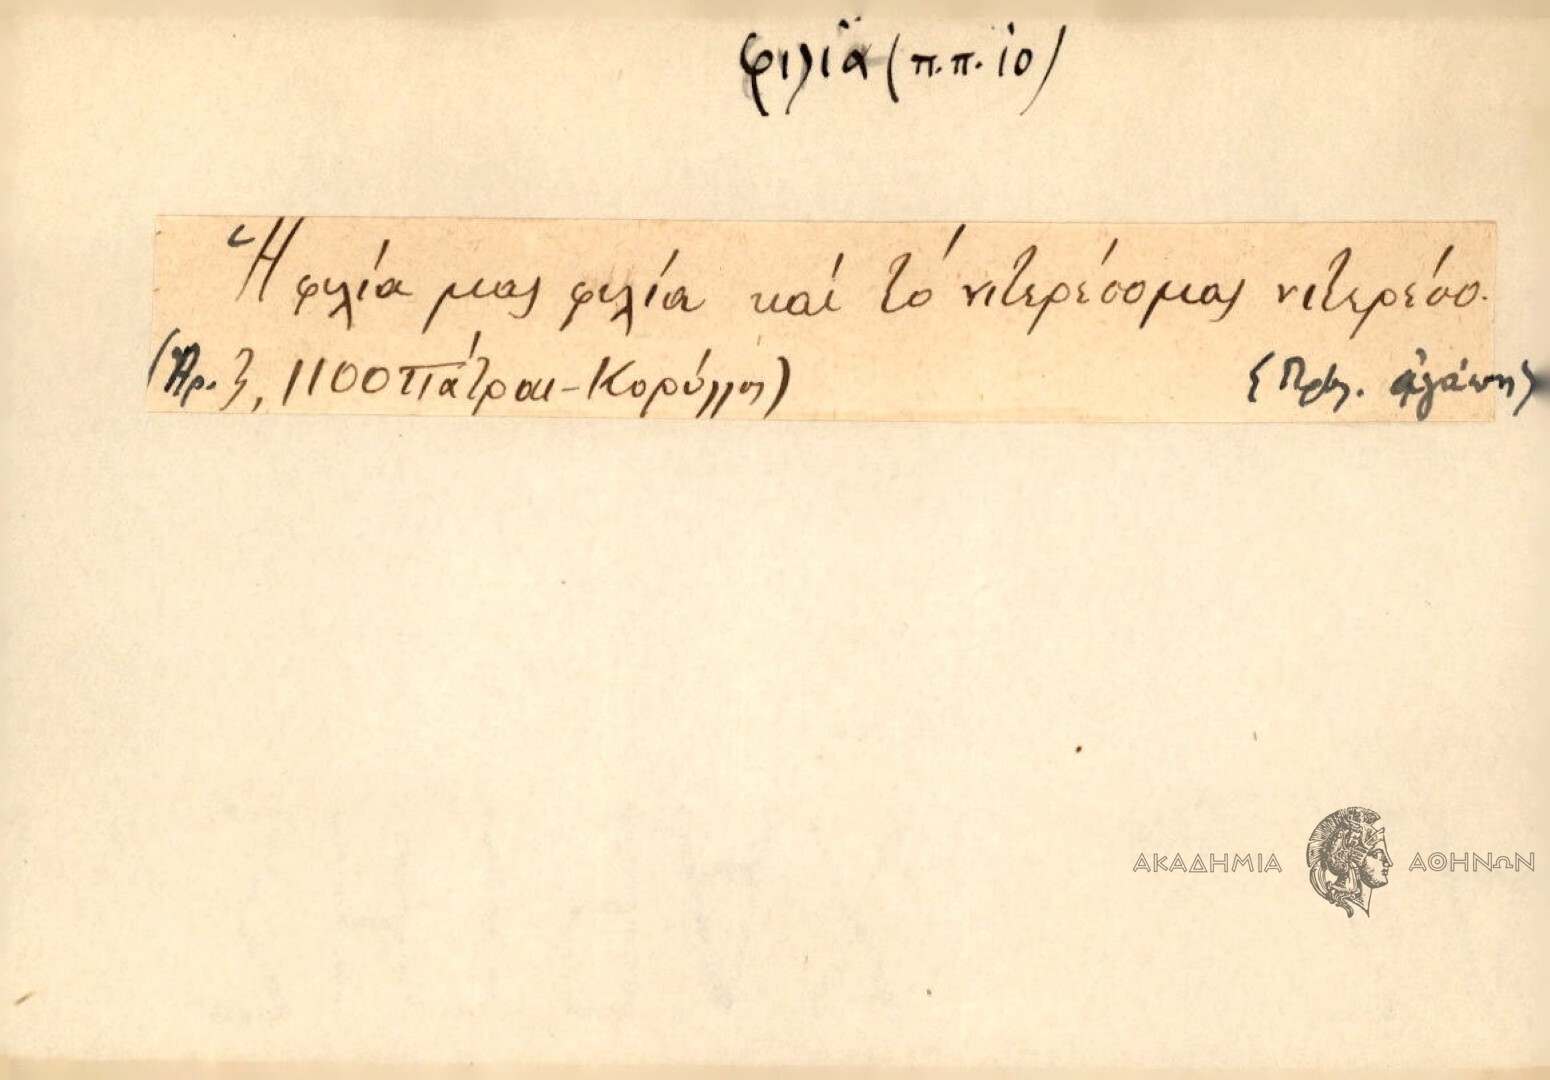 φιλία (π.π. ιο)
Ἡ φιλία μας φιλία καί τό ντερέσομας ντερέσο.
(Ἀρ. 3, 1100 Πάτραι - Κορύλλος)
(Πρβ. ἀγάπη)
ΑΚΑΔΗΜΙΑ ΑΘΗΝΩΝ